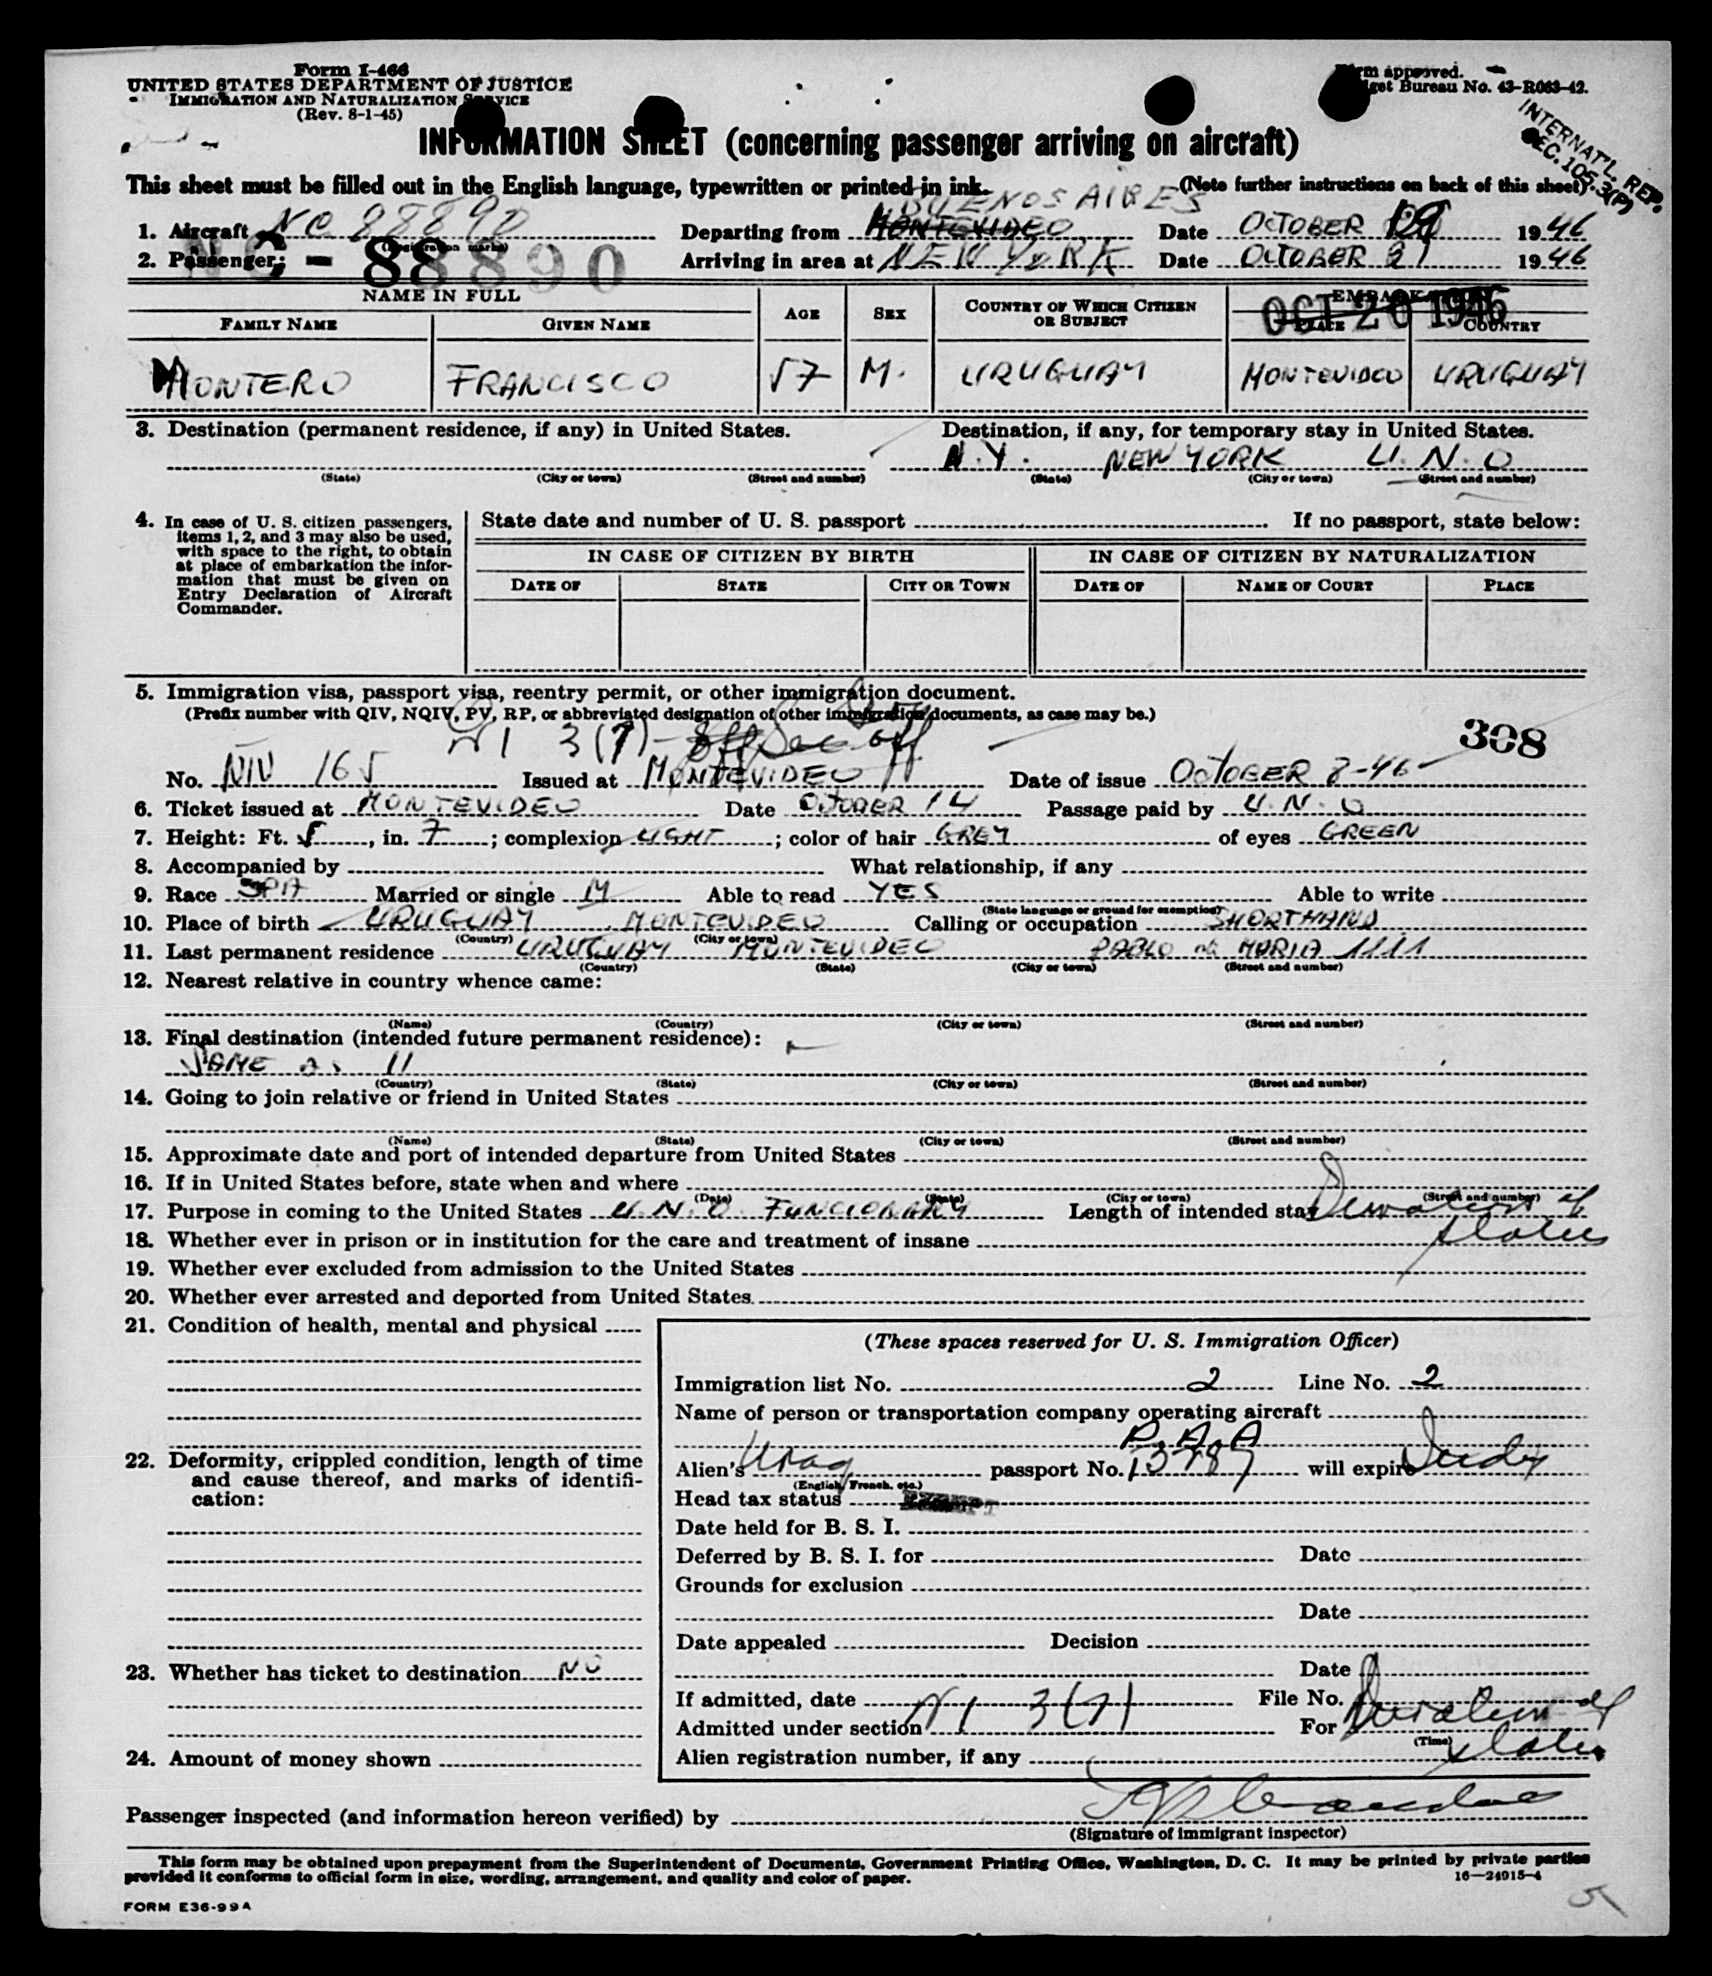 Form I-466
UNITED STATES DEPARTMENT OF JUSTICE
IMMIGRATION AND NATURALIZATION SERVICE
(Rev. 8-1-45)
Form approved.
Budget Bureau No. 43-R063-42.
INTERNAT'L. REP.
SEC. 105.3(P)
INFORMATION SHEET (concerning passenger arriving on aircraft)
This sheet must be filled out in the English language, typewritten or printed in ink. (Note further instructions on back of this sheet)
BUENOS AIRES
1. Aircraft NC 88890 (Registration marks) Departing from MONTEVIDEO Date OCTOBER 19 46
NC - 88890
2. Passenger: Arriving in area at NEW YORK Date OCTOBER 21 19 46
NAME IN FULL EMBARKATION
OCT 20 1946
FAMILY NAME GIVEN NAME AGE SEX COUNTRY OF WHICH CITIZEN OR SUBJECT PLACE COUNTRY
MONTERO FRANCISCO 57 M. URUGUAY MONTEVIDEO URUGUAY
3. Destination (permanent residence, if any) in United States. Destination, if any, for temporary stay in United States.
N.Y. NEW YORK U.N.O
(State) (City or town) (Street and number) (State) (City or town) (Street and number)
4. In case of U. S. citizen passengers, items 1, 2, and 3 may also be used, with space to the right, to obtain at place of embarkation the information that must be given on Entry Declaration of Aircraft Commander.
State date and number of U. S. passport If no passport, state below:
IN CASE OF CITIZEN BY BIRTH IN CASE OF CITIZEN BY NATURALIZATION
DATE OF STATE CITY OR TOWN DATE OF NAME OF COURT PLACE
5. Immigration visa, passport visa, reentry permit, or other immigration document.
(Prefix number with QIV, NQIV, PV, RP, or abbreviated designation of other immigration documents, as case may be.)
3(7) off
308
No. NIV 165 Issued at MONTEVIDEO Date of issue OCTOBER 8-46
6. Ticket issued at MONTEVIDEO Date OCTOBER 14 Passage paid by U.N.O
7. Height: Ft. 5, in. 7; complexion LIGHT; color of hair GREY of eyes GREEN
8. Accompanied by What relationship, if any
9. Race SPA Married or single M Able to read YES Able to write
(State language or ground for exemption)
10. Place of birth URUGUAY MONTEVIDEO Calling or occupation SHORTHAND
(Country) (City or town)
11. Last permanent residence URUGUAY MONTEVIDEO PABLO de MARIA 1111
(Country) (State) (City or town) (Street and number)
12. Nearest relative in country whence came:
(Name) (Country) (City or town) (Street and number)
13. Final destination (intended future permanent residence):
SAME as 11
(Country) (State) (City or town) (Street and number)
14. Going to join relative or friend in United States
(Name) (State) (City or town) (Street and number)
15. Approximate date and port of intended departure from United States
16. If in United States before, state when and where
(Date) (State) (City or town) (Street and number)
17. Purpose in coming to the United States U.N.O. FUNCIONARY Length of intended stay Duration of
status
18. Whether ever in prison or in institution for the care and treatment of insane
19. Whether ever excluded from admission to the United States
20. Whether ever arrested and deported from United States
21. Condition of health, mental and physical
22. Deformity, crippled condition, length of time and cause thereof, and marks of identification:
23. Whether has ticket to destination NO
24. Amount of money shown
(These spaces reserved for U. S. Immigration Officer)
Immigration list No. 2 Line No. 2
Name of person or transportation company operating aircraft
P.A.A
Alien's Urug passport No. 13789 will expire
(English, French, etc.)
Head tax status
Date held for B. S. I.
Deferred by B. S. I. for Date
Grounds for exclusion
Date
Date appealed Decision
Date
If admitted, date File No.
Admitted under section 3(7) For Duration of
(Time) status
Alien registration number, if any
Passenger inspected (and information hereon verified) by
(Signature of immigrant inspector)
This form may be obtained upon prepayment from the Superintendent of Documents, Government Printing Office, Washington, D. C. It may be printed by private parties
provided it conforms to official form in size, wording, arrangement, and quality and color of paper.
16—24915-4
FORM E36-99A